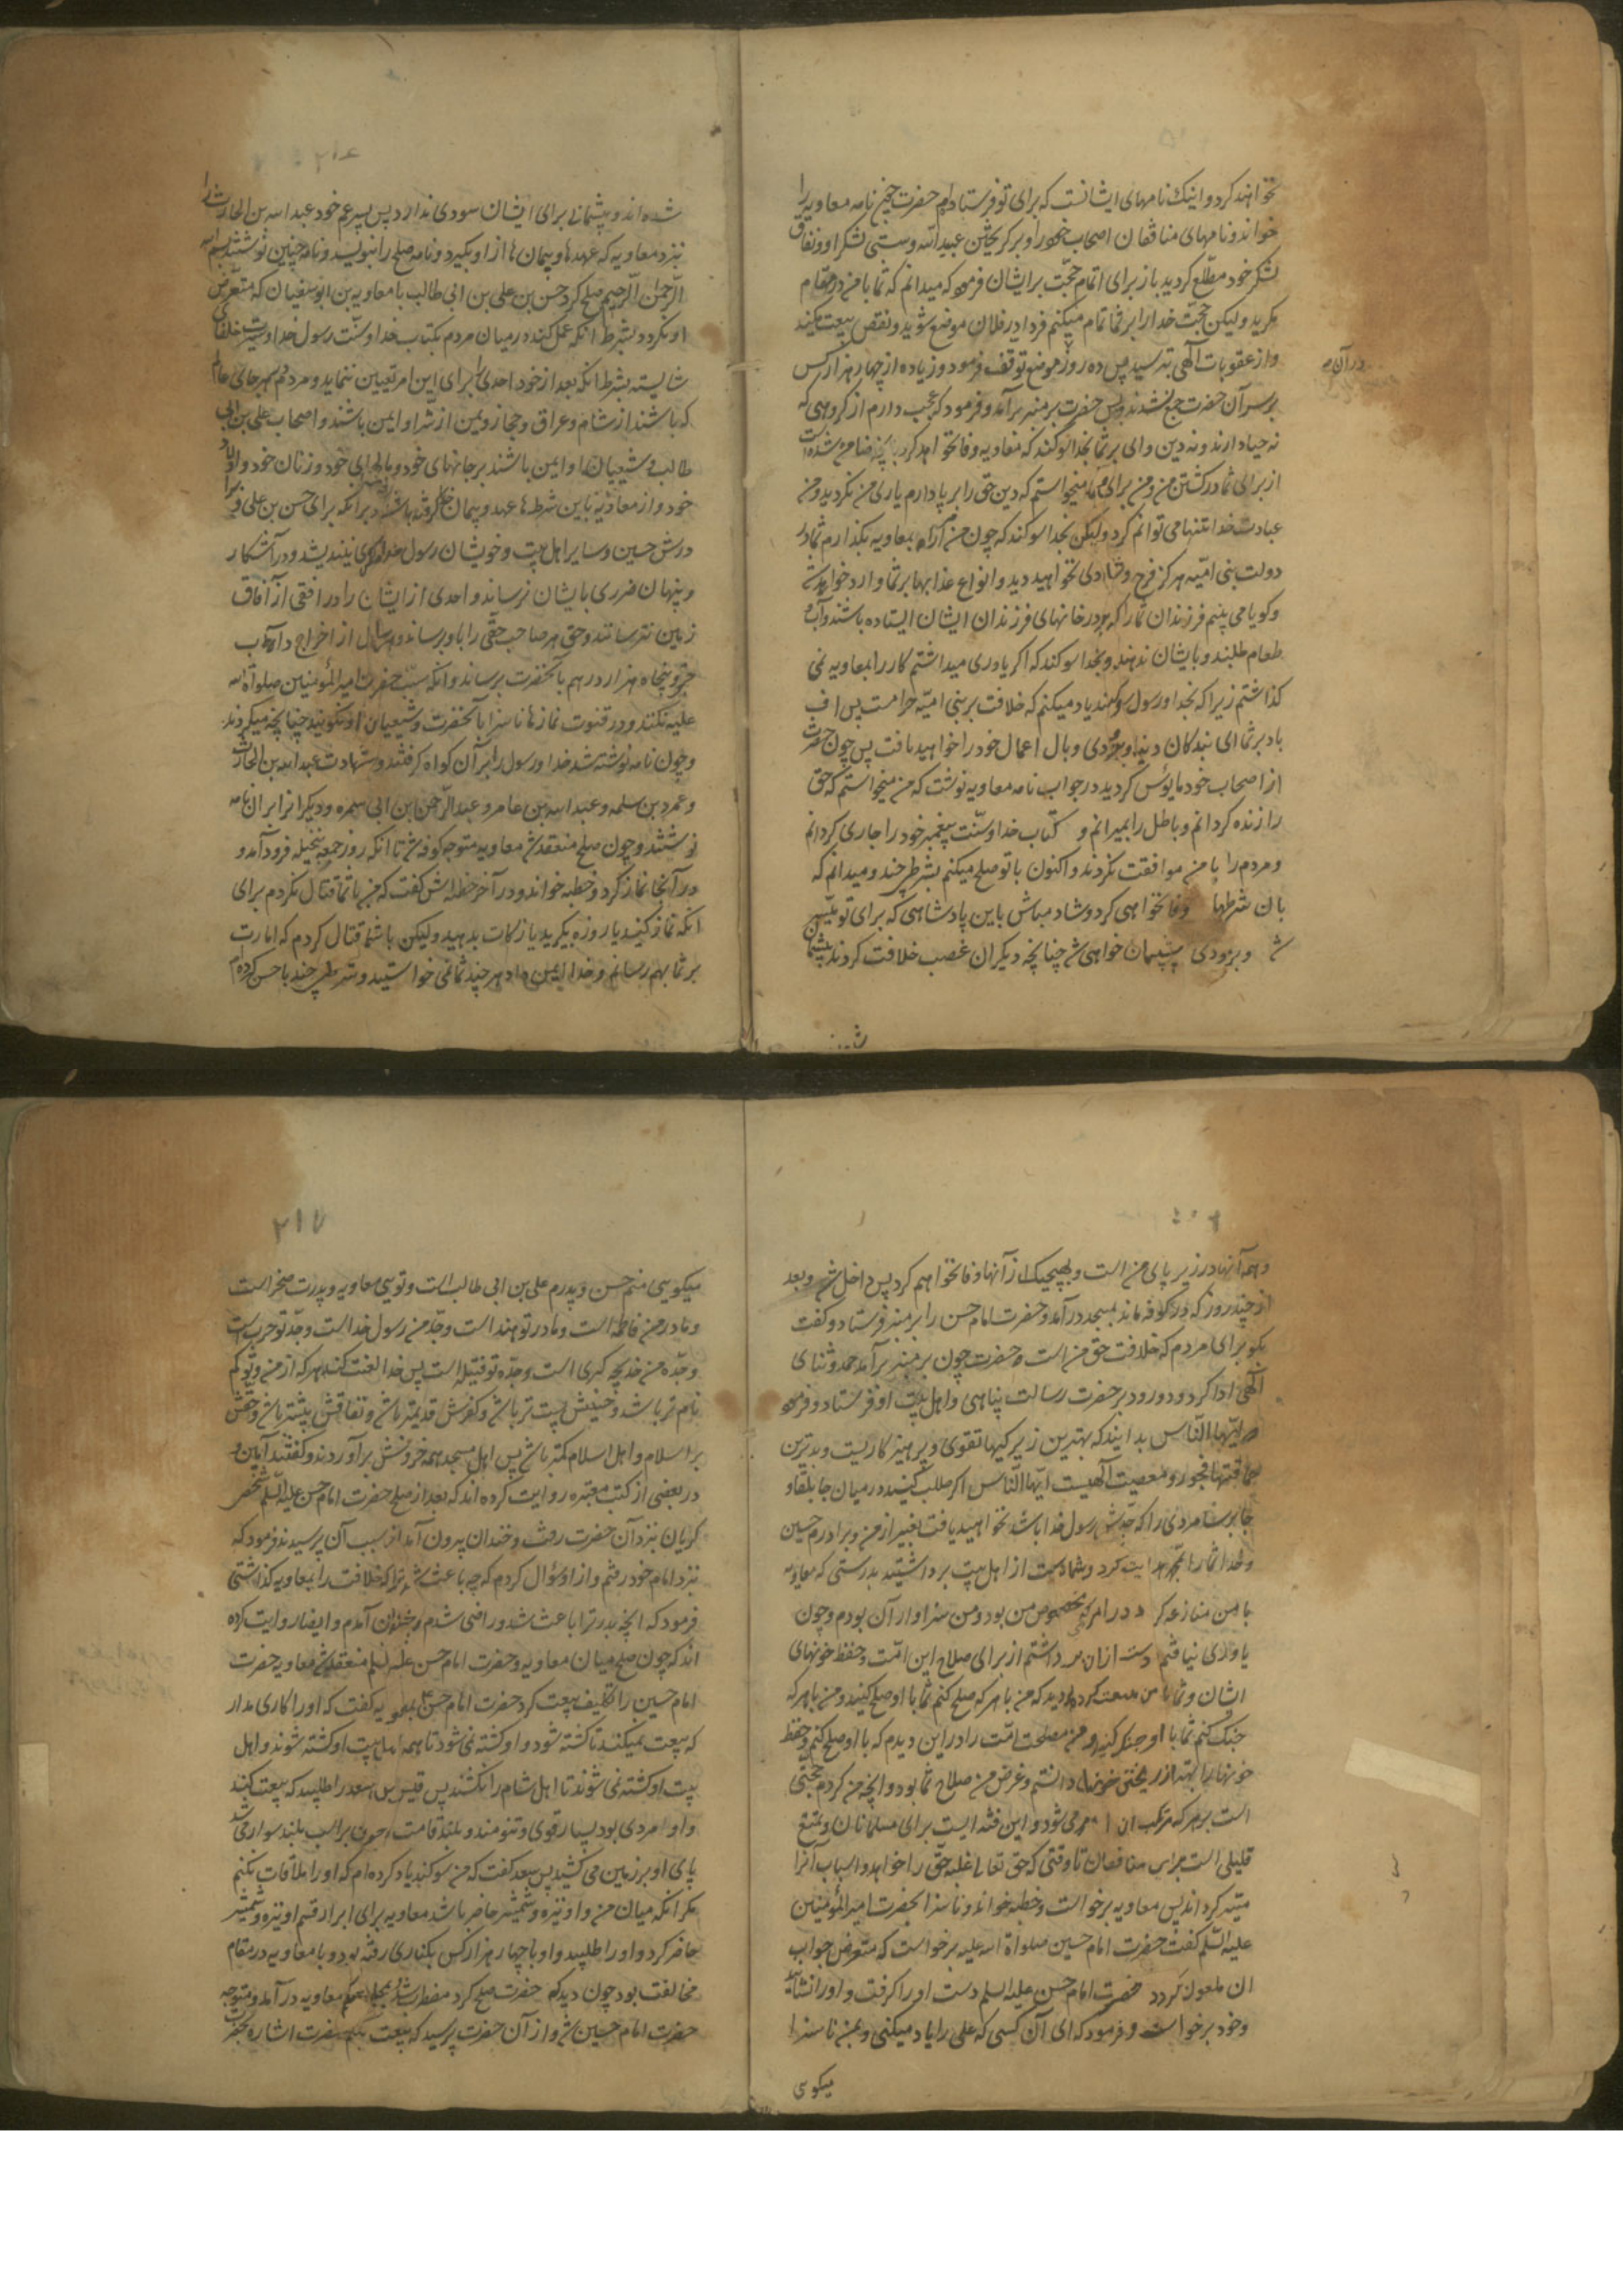 نخواهند کرد و اینک نامهای ایشانست که برای تو فرستاده‌ام حضرت چون نامه معاویه را
خواند و نامهای منافقان اصحاب خود را و بر گریختن عبید الله و سستی لشکر او و نفاق
لشکر خود مطلع گردید باز برای اتمام حجّت بر ایشان فرمود که میدانم که شما با من در مقام
مکرید ولیکن حجّت خدا را بر شما تمام میکنم فردا در فلان موضع شوید و نقض بیعت مکنید
و از عقوبات آلهی بترسید پس ده روز موضع توقف فرمود و زیاده از چهار هزار کس
در آن
بر سر آن حضرت جمع نشدند پس حضرت بر منبر برآمد و فرمود که عجب دارم از گروهی که
نه حیا دارند و نه دین وای بر شما بخدا سوگند که معاویه وفا نخواهد کرد بآنچه ضامن شده است
از برای شما در کشتن من و من برای شما میخواستم که دین حق را بر پا دارم یاری من نکردید و من
عبادت خدا تنها می توانم کرد ولیکن بخدا سوکند که چون من امر را بمعاویه بکذارم شما در
دولت بنی امیّه هرکز فرح و شادی نخواهید دید و انواع عذابها بر شما وارد خواهد شد
و کویا می بینم فرزندان شما را که بر در خانهای فرزندان ایشان ایستاده باشند و آب و
طعام طلبند و بایشان ندهند و بخدا سوکند که اکر یاوری میداشتم کار را بمعاویه نمی
کذاشتم زیرا که بخدا و رسول سوکند یاد میکنم که خلافت بر بنی امیّه حرامست پس اف
باد بر شما ای بندکان دنیا و بزودی وبال اعمال خود را خواهید یافت پس چون حضرت
از اصحاب خود مایوس کردید در جواب نامه معاویه نوشت که من میخواستم که حق
را زنده کردانم و باطل را بمیرانم و کتاب خدا و سنّت پیغمبر خود را جاری کردانم
و مردم را با من موافقت نکردند و اکنون با تو صلح میکنم بشرطی چند و میدانم که
بان شرطها وفا نخواهی کرد و شاد مباش باین پادشاهی که برای تو میّسر
شد و بزودی پشیمان خواهی شد چنانچه دیکران غصب خلافت کردند پشیمان
شده
شده اند و پشیمانی برای ایشان سودی ندارد پس پسر عم خود عبد الله بن الحارث را
نزد معاویه که عهدها و پیمان ها از او بکیرد و نامه صلح را بنویسد و نامه چنین نوشتند بسم الله
الرّحمن الرّحیم صلح کرد حسن بن علی بن ابی طالب با معاویه بن ابو سفیان که متعرّض
او نکردد بشرط انکه عمل کند در میان مردم بکتاب خدا و سنّت رسول خدا و سیرت خلفای
شایسته بشرط انکه بعد از خود احدی را برای این امر تعیین ننماید و مردم هر جای عالم
که باشند از شام و عراق و حجاز و یمن از شر او ایمن باشند و اصحاب علی بن ابی
طالب و شیعیان او ایمن باشند بر جانهای خود و مالهای خود و زنان خود و اولاد
خود و از معاویه باین شرطها عهد و پیمان خدا کرفته باشد و بر انکه برای حسن بن علی و برا
درش حسین و سایر اهل بیت و خویشان رسول خدا مکری نیندیشد و در آشکار
و پنهان ضرری بایشان نرساند و احدی از ایشان را در افقی از آفاق
زمین نترساند و حق هر صاحب حقّی را باو برساند و هر سال از اخراج داراب
جرد پنجاه هزار درهم بانحضرت برساند و انکه سبّ حضرت امیر المؤمنین صلواة الله
علیه نکنند و در قنوت نمازها ناسزا بآنحضرت و شیعیان او نکویند چنانچه میکردند
و چون نامه نوشته شد خدا و رسول را بر آن کواه کرفتند و شهادت عبد الله بن الحارث
و عمرو بن سلمه و عبد الله بن عامر و عبد الرّحمن بن ابی سمره و دیکران بران نامه
نوشتند و چون صلح منعقد شد معاویه متوجه کوفه شد تا انکه روز جمعه بنخیله فرود آمد و
در آنجا نماز کرد و خطبه خواند و در آخر خطبه اش کفت که من با شما قتال نکردم برای
انکه نماز کنید یا روزه بکرید یا زکات بدهید ولیکن با شما قتال کردم که امارت
بر شما بهم رسانم و خدا بمن داد هر چند شما نمی خواستید و شرطی چند با حسن کرده ام
و همه آنها در زیر پای من است و بهیچیک از آنها وفا نخواهم کرد پس داخل شد و بعد
از چند روز که در کوفه ماند بمسجد درآمد و حضرت امام حسن را بر منبر فرستاد و کفت
بکو برای مردم که خلافت حق من است و حضرت چون بر منبر برآمد حمد و ثنای
الهی ادا کرد و درود بر حضرت رسالت پناهی و اهل بیت او فرستاد و فرمود
ایّها النّاس بدانید که بهترین زیرکیها تقوی و پرهیزکاریست و بدترین
حماقتها فجور و معصیت آلهیست ایّها النّاس اکر طلب کنید در میان جابلقا و
جابرسا مردی را که جدّش رسول خدا باشد نخواهید یافت بغیر از من و برادرم حسین
و خدا شما را بمحمد هدایت کرد و شما دست از اهل بیت برداشتید بدرستی که معاویه
با من منازعه کرد در امری که مخصوص من بود و من سزاوار آن بودم و چون
یاوری نیافتم دست ازان برداشتم از برای صلاح این امّت و حفظ خونهای
ایشان و شما با من بیعت کرده اید که من با هر که صلح کنم شما با او صلح کنید و من با هر که
جنک کنم شما با او جنک کنید و من مصلحت امّت را در این دیدم که با او صلح کنم و حفظ
خونها را بهتر از ریختن خونها دانستم و غرض من صلاح شما بود و انچه من کردم حجتی
است بر هر که مرتکب ان امر می شود و این فتنه ایست برای مسلمانان و تمتع
قلیلی است برای منافقان تا وقتی که حق تعالی غلبه حقّ را خواهد و اسباب آنرا
میسّر کرداند پس معاویه برخواست و خطبه خواند و ناسزا بحضرت امیر المؤمنین
علیه السّلم کفت حضرت امام حسین صلواة الله علیه برخواست که متعرض جواب
ان ملعون کردد حضرت امام حسن علیه السلم دست او را کرفت و او را نشانید
و خود برخواست و فرمود که ای آن کسی که علی را یاد میکنی و بمن ناسزا
میکویی
۲۱۷
میکویی منم حسن و پدرم علی بن ابی طالب است و تویی معاویه و پدرت صخر است
و مادر من فاطمه است و مادر تو هند است و جدّ من رسول خداست و جدّ تو حرب است
و جدّه من خدیجه کبری است و جدّه تو فتیله است پس خدا لعنت کند هر که از من و تو کم
نام تر باشد و حسبش پست تر باشد و کفرش قدیمتر باشد و نفاقش بیشتر باشد و حقش
بر اسلام و اهل اسلام کمتر باشد پس اهل مسجد همه خروش برآوردند و کفتند آمین و
در بعضی از کتب معتبره روایت کرده اند که بعد از صلح حضرت امام حسن علیه السّلم شخصی
کریان نزد آن حضرت رفت و خندان بیرون آمد از سبب آن پرسیدند فرمود که
نزد امام خود رفتم و از او سؤال کردم که چه باعث شد ترا که خلافت را بمعاویه کذاشتی
فرمود که انچه پدر ترا باعث شد و راضی شدم و خندان آمدم و ایضا روایت کرده
اند که چون صلح میان معاویه و حضرت امام حسن علیه السلم منعقد شد معاویه حضرت
امام حسین را تکلیف بیعت کرد حضرت امام حسن بمعویه کفت که او را کاری مدار
که بیعت نمیکند تا کشته شود و او کشته نمی شود تا همه اهل بیت او کشته شوند و اهل
بیت او کشته نمی شوند تا اهل شام را نکشند پس قیس بن سعد را طلبید که بیعت کند
و او مردی بود بسیار قوی و تنومند و بلند قامت چون بر اسب بلند سوار می شد
پای او بر زمین می کشید پس سعد کفت که من سوکند یاد کرده ام که او را ملاقات نکنم
مکر انکه میان من و او نیزه و شمشیر حاضر باشد معاویه برای ابرار قسم او نیزه و شمشیر
حاضر کرد و او را طلبید و او با چهار هزار کس بکناری رفته بود و با معاویه در مقام
مخالفت بود چون دید که حضرت صلح کرد مضطر شد بمجلس معاویه درآمد و متوجه
حضرت امام حسین شد و از آن حضرت پرسید که بیعت بکنم حضرت اشاره بحضرت